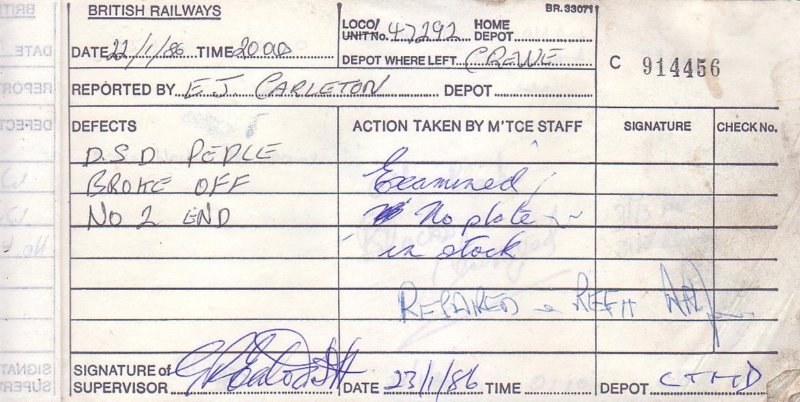 BRITISH RAILWAYS
BR.33071
LOCO/UNIT No. 47292 HOME DEPOT
DATE 22/1/86 TIME 2000
DEPOT WHERE LEFT CREWE
C 914456
REPORTED BY E.J. CARLETON DEPOT
DEFECTS ACTION TAKEN BY M'TCE STAFF SIGNATURE CHECK No.
D.S.D. PEDLE
BROKE OFF Examined
NO 2 END No plate
in stock
REPAIRED
SIGNATURE of SUPERVISOR DATE 23/1/86 TIME DEPOT CTMD